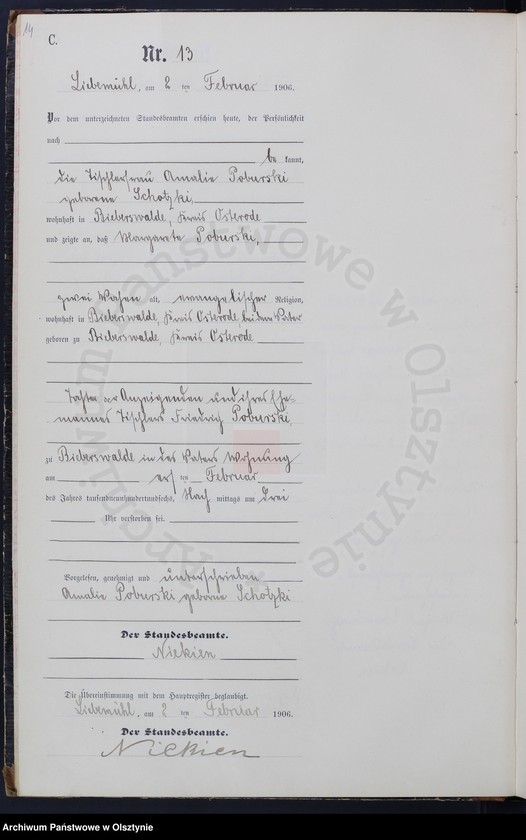 14
C.
Nr. 13
Liebemühl, am 2 ten Februar 1906.
Vor dem unterzeichneten Standesbeamten erschien heute, der Persönlichkeit
nach
be kannt,
die Tischlerfrau Amalie Poburski
geborene Schotzki,
wohnhaft in Bieberswalde, Kreis Osterode
und zeigte an, daß Margarete Poburski,
zwei Wochen alt, evangelischer Religion,
wohnhaft in Bieberswalde, Kreis Osterode, bei dem Vater
geboren zu Bieberswalde, Kreis Osterode
Tochter der Anzeigenden und ihres Ehe-
mannes Tischlers Friedrich Poburski,
zu Bieberswalde in des Vaters Wohnung
am ersten Februar
des Jahres tausendneunhundertundsechs, Nach mittags um drei
Uhr verstorben sei.
Vorgelesen, genehmigt und unterschrieben
Amalie Poburski geborene Schotzki
Der Standesbeamte.
Niekien
Die Übereinstimmung mit dem Hauptregister beglaubigt.
Liebemühl, am 2 ten Februar 1906.
Der Standesbeamte.
Niekien
Archiwum Państwowe w Olsztynie
Archiwum Państwowe w Olsztynie